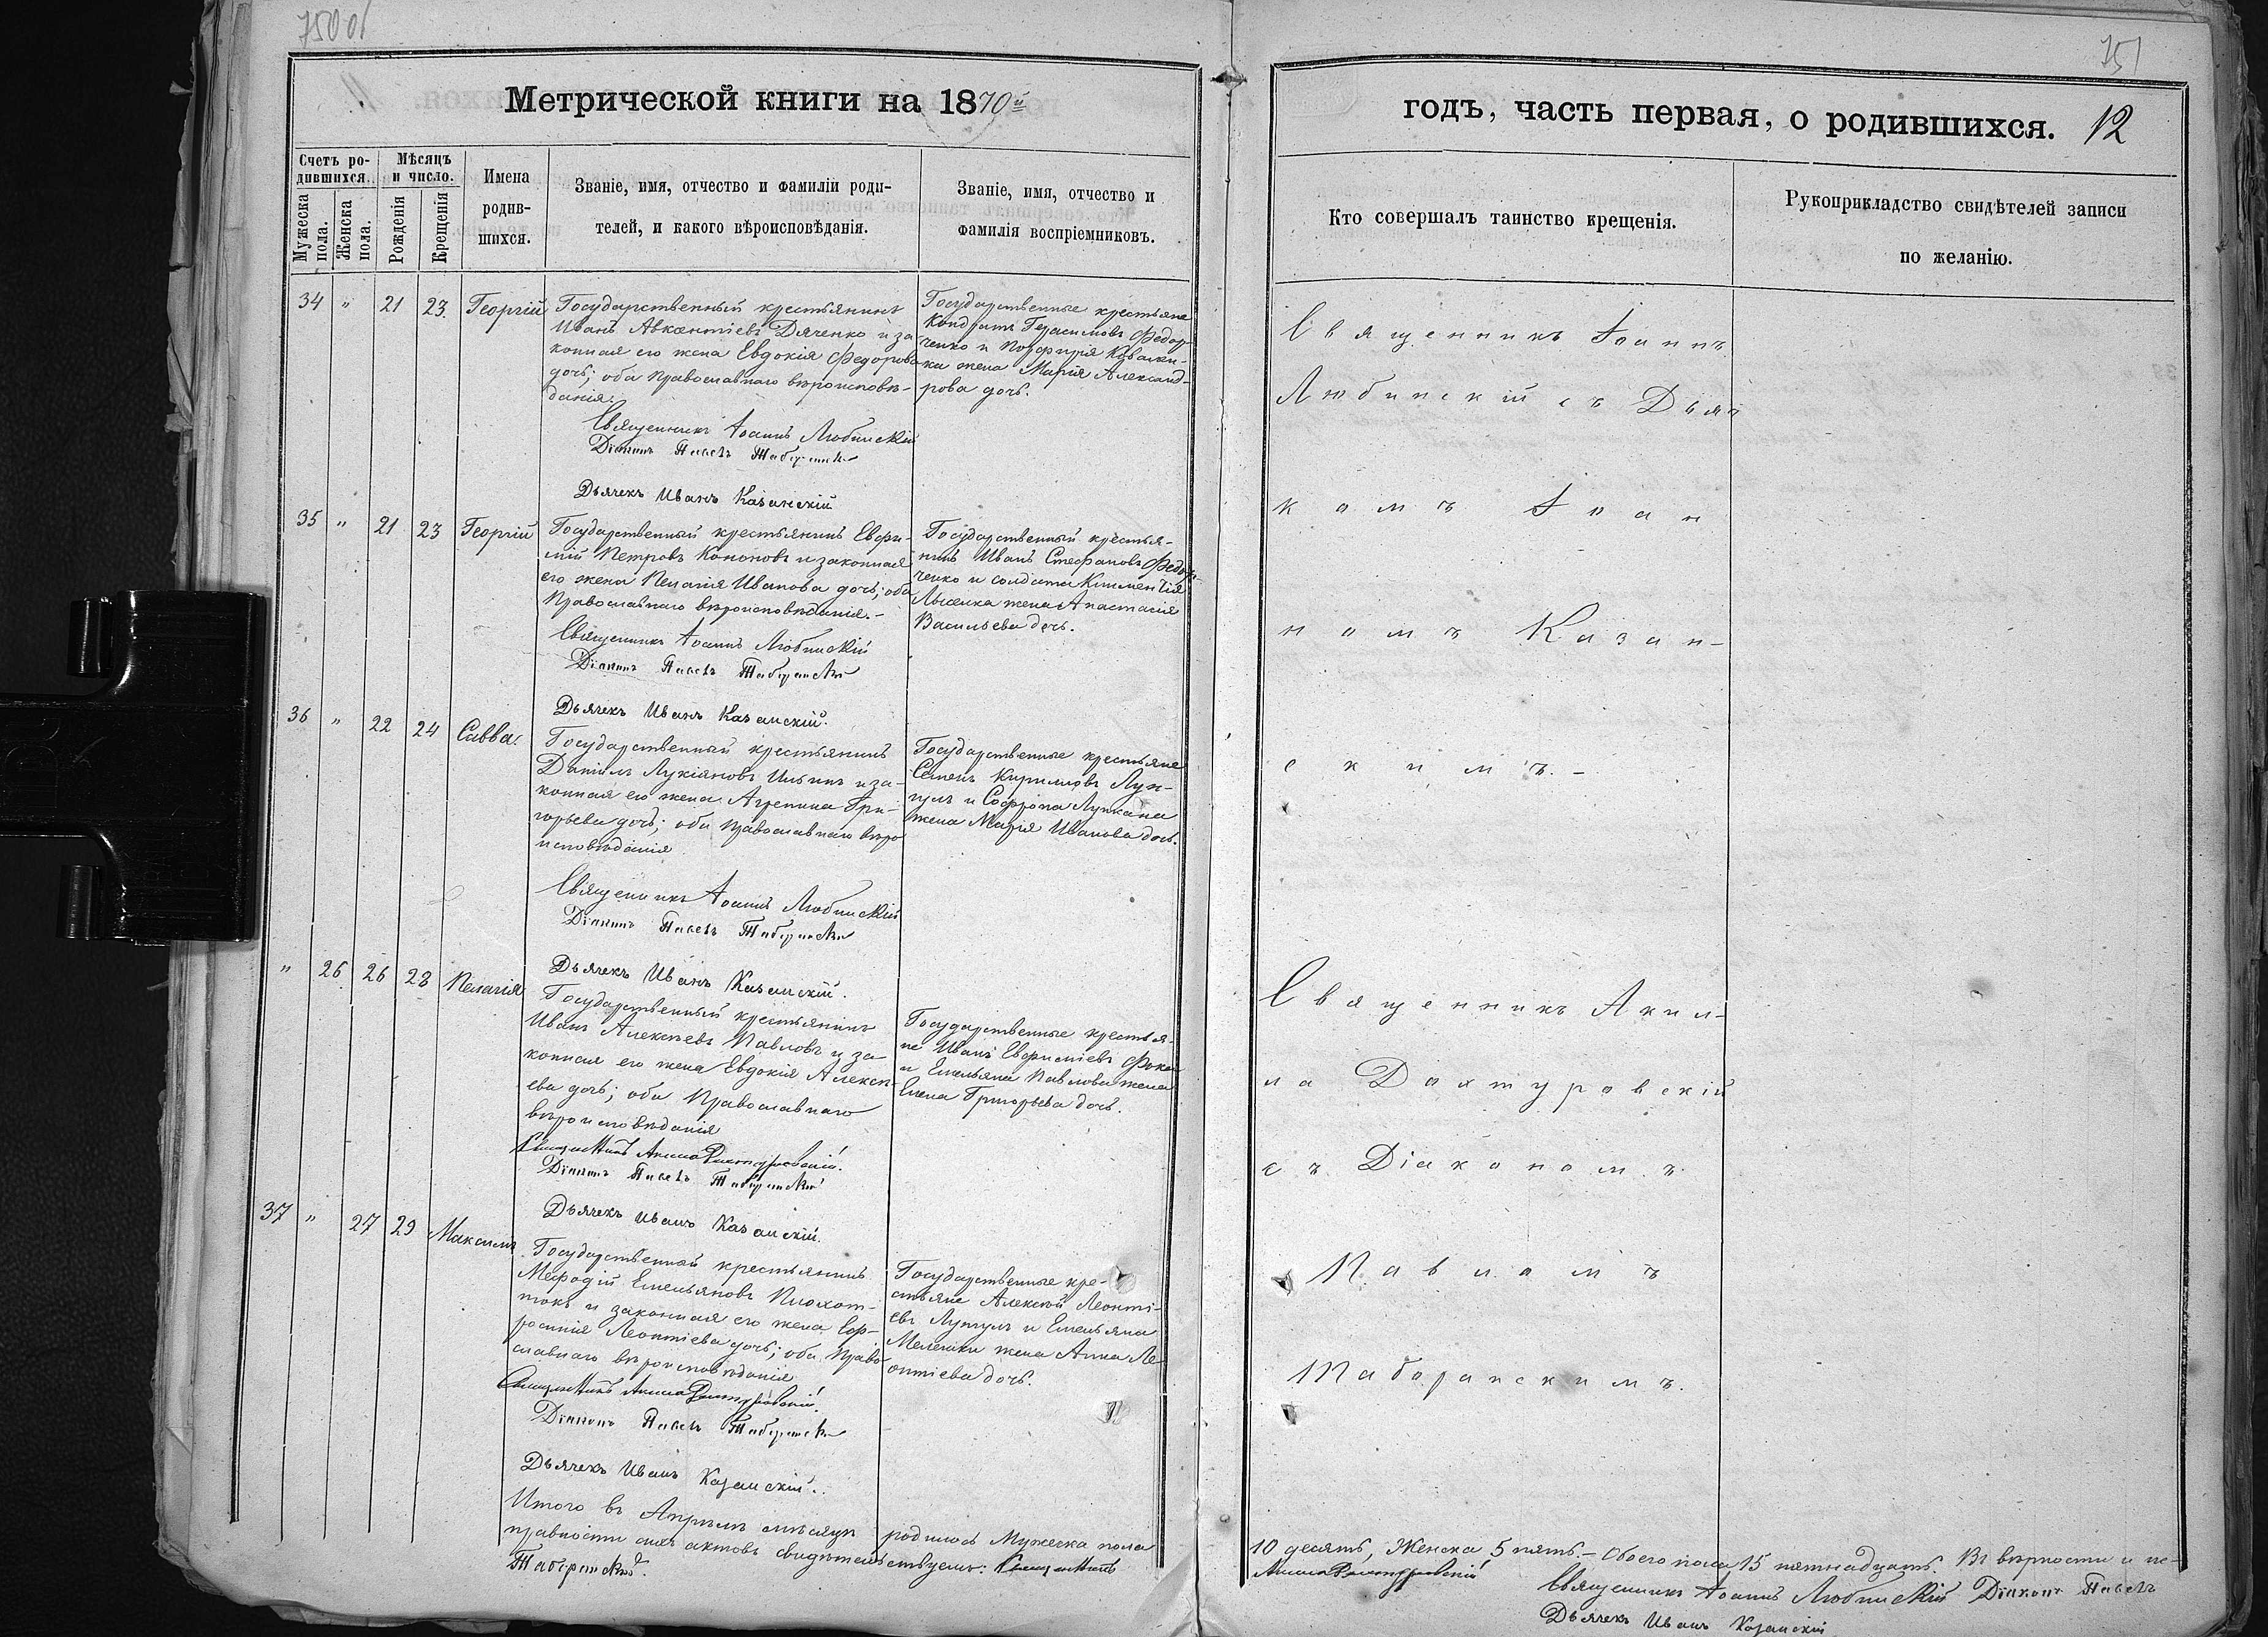 750об
751
Метрической книги на 1870й
годъ, часть первая, о родившихся. 12
Счетъ ро-
дившихся.
Мужеска
пола.
Женска
пола.
Мѣсяцъ
и число.
Рожденія
Крещенія
Имена
родив-
шихся.
Званіе, имя, отчество и фамиліи роди-
телей, и какого вѣроисповѣданія.
Званіе, имя, отчество и
фамилія воспріемниковъ.
Кто совершалъ таинство крещенія.
Рукоприкладство свидѣтелей записи
по желанію.
34 " 21 23. Георгій
Государственный крестьянинъ
Иванъ Авксентіевъ Дяченко и за
конная его жена Евдокія Федорова
дочь; оба православнаго вѣроисповѣ-
данія.
Священникъ Іоаннъ Любинскій
Діаконъ Павелъ Таборанскій
Дьячекъ Иванъ Казанскій
Государственные крестьяне
Кондратъ Герасимовъ Федор-
ченко и Порфирія Ковален-
ка жена Марія Александ-
рова дочь.
35 " 21 23 Георгій
Государственный крестьянинъ Евфи-
мій Петровъ Кононовъ и законная
его жена Пелагія Иванова дочь; оба
Православнаго вѣроисповѣданія.-
Священникъ Іоаннъ Любинскій
Діаконъ Павелъ Таборанскій
Дьячекъ Иванъ Казанскій.
Государственный крестья-
нинъ Иванъ Стефановъ Федор-
ченко и солдата Климентія
Лысенка жена Анастасія
Васильева дочь.
36 " 22 24 Савва.
Государственный крестьянинъ
Даніилъ Лукіановъ Ильинъ и за-
конная его жена Агрепина Гри-
горьева дочь; оба православнаго вѣро
исповѣданія
Священникъ Іоаннъ Любинскій
Діаконъ Павелъ Таборанскій
Дьячекъ Иванъ Казанскій.
Государственные крестьяне
Семенъ Кирилловъ Луп-
гулъ и Софрона Лупкана
жена Марія Иванова дочь.
" 26 26 28 Пелагія
Государственный крестьянинъ
Иванъ Алексѣевъ Павловъ и за-
конная его жена Евдокія Алексѣ-
ева дочь; оба Православнаго
вѣроисповѣданія
Священникъ Акила Дохтуровскій.
Діаконъ Павелъ Таборанскій
Дьячекъ Иванъ Казанскій.
Государственные крестья-
не Иванъ Евфиміевъ Фока
и Емельяна Павлова жена
Елена Григорьева дочь.
37 " 27 29 Максимъ
Государственной крестьянинъ
Мефодій Емельяновъ Плохот-
нюкъ и законная его жена Евф-
росинія Леонтіева дочь; оба Право
славнаго вѣроисповѣданія
Священникъ Акила Дохтуровскій.
Діаконъ Павелъ Таборанскій
Дьячекъ Иванъ Казанскій.
Государственные кре-
стьяне Алексѣй Леонті-
евъ Лупулъ и Емельяна
жена Анна Ле
онтіева дочь.
Священникъ Іоаннъ
Любинскій съ Дьяч
комъ Іоан
номъ Казан-
скимъ.-
Священникъ Акил-
ла Дохтуровскій
съ Діакономъ
Павломъ
Таборанскимъ.
Итого въ Апрѣлѣ мѣсяцѣ родилось Мужеска пола 10 десять, Женска 5 пять.- Обоего пола 15 пятнадцать. Въ вѣрности и ис-
правности сихъ актовъ свидѣтельствуемъ: Священникъ Акила Дохтуровскій Священникъ Іоаннъ Любинскій Діаконъ Павелъ
Таборанскій. Дьячекъ Иванъ Казанскій